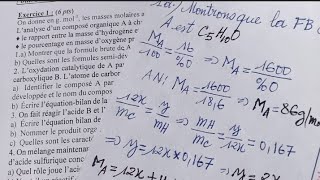 Exercice 1 : (6 pts)
On donne en g.mol⁻¹, les masses molaires a
L'analyse d'un composé organique A à ch
• le rapport entre la masse d'hydrogène e
• le pourcentage en masse d'oxygène p
1.a) Montrer que la formule brute de A
b) Quelles sont les formules semi-dév
2. L'oxydation catalytique de A par
carboxylique B. L'atome de carbon
a) Identifier le composé A par
développée et le nom du compos
b) Ecrire l'équation-bilan de la
3. On fait réagir l'acide B et l'
a) Ecrire l'équation bilan de
b) Nommer le produit orga
c) Quelles sont les caract
4. On mélange maintenant
d'acide sulfurique concent
a) Quel rôle joue l'acid
1a) Montrons que la FB
A est C₅H₁₀O
M_A/100 = 16/%O ⇒ M_A = 1600/%O
AN: M_A = 1600/18,6 ⇒ M_A = 86g/mo
12x/mC = y/mH ⇒ mH/mC = y/12x =
⇒ y = 12x × 0,167 ⇒ y = 2x
M_A = 12x +